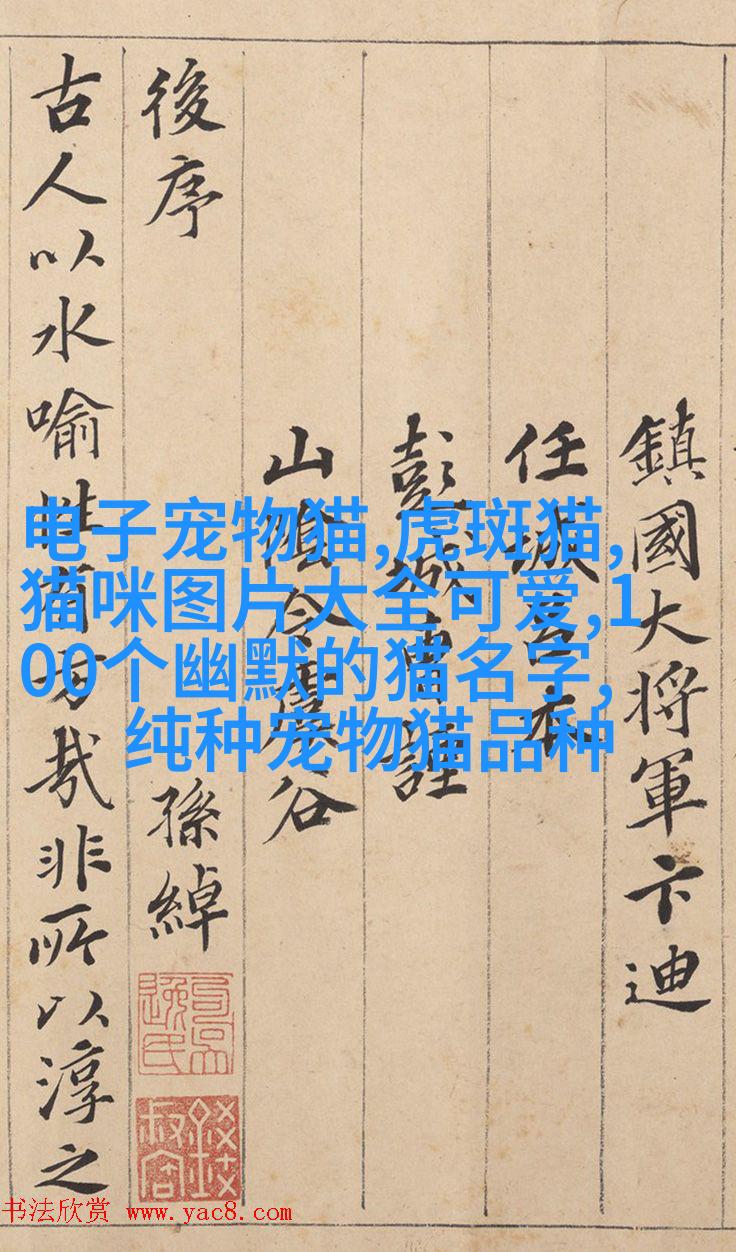 鎮國大将軍卞迪
任城呂本
彭城曹諲
山陰令虞谷
後序 孫綽
古人以水喻性有旨哉非所以淳之
电子宠物猫,虎斑猫,
猫咪图片大全可爱,1
00个幽默的猫名字,
纯种宠物猫品种
书法欣赏 www.yac8.com